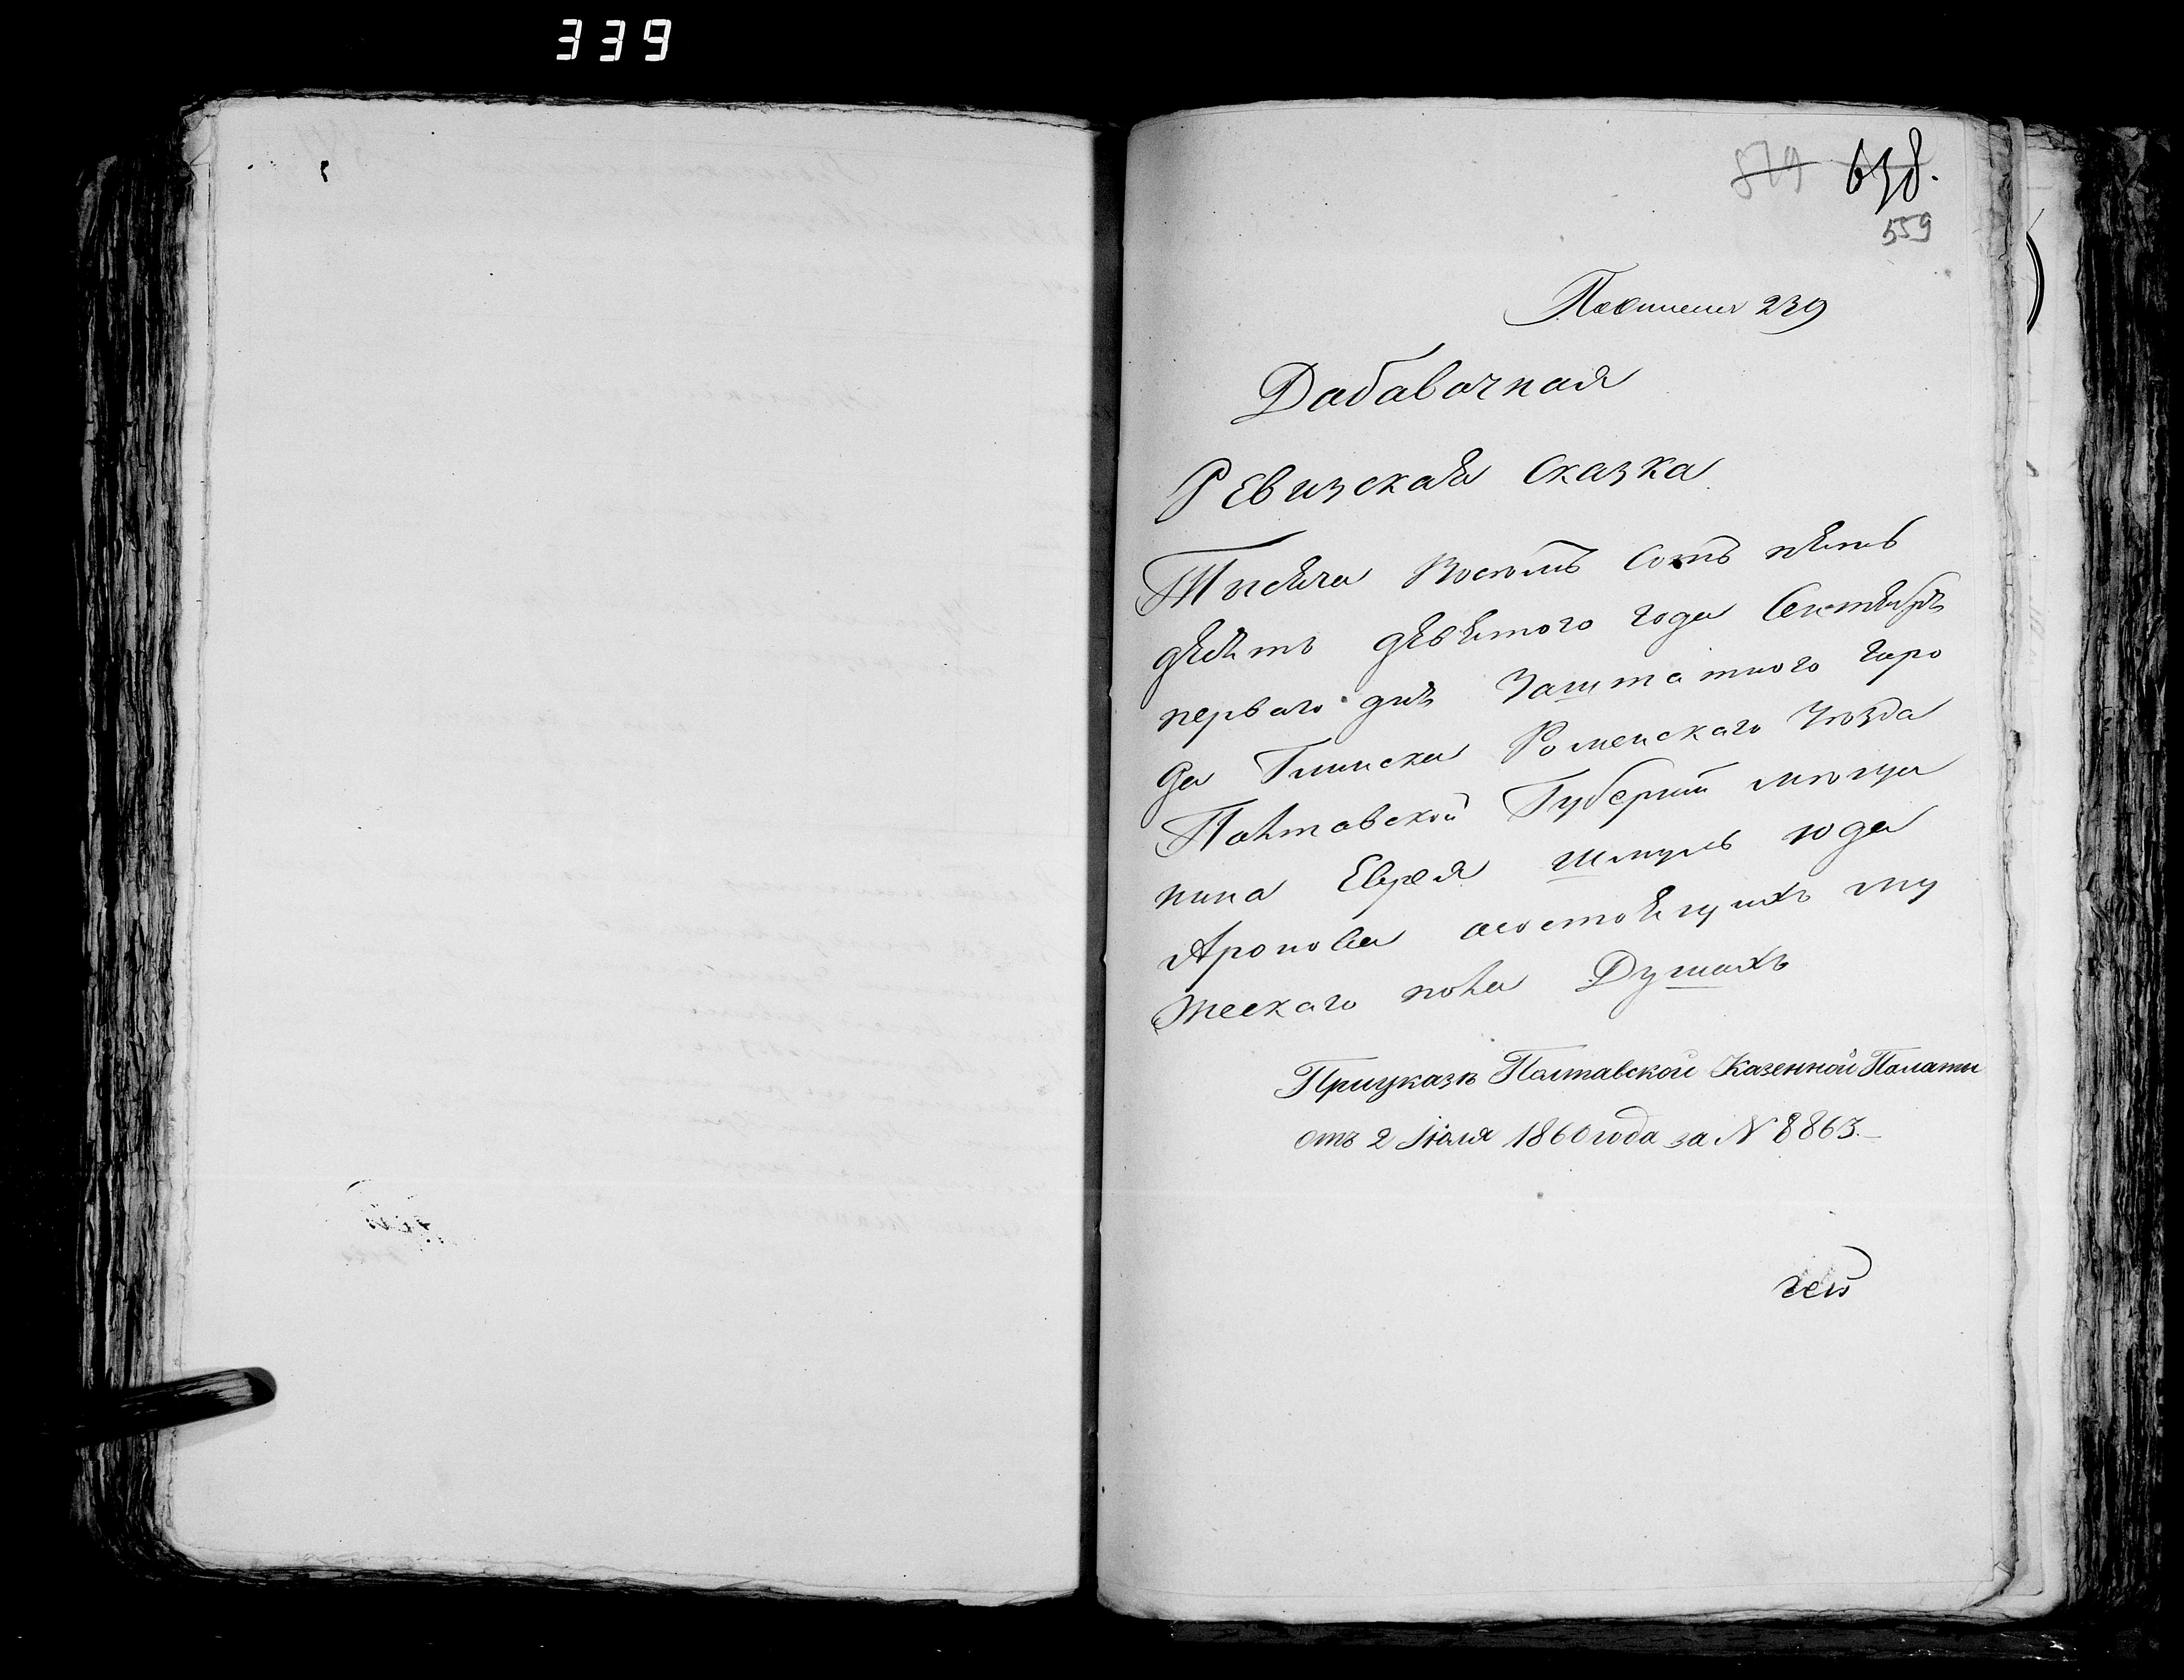 339
879 638.
559
239
Дабавачная
Ревизская Сказка
Тисяча Восѣмъ Сотъ пять
дѣсятъ дѣвятого года Сентября
перваго дня Заштатного Горо
да Глинска Роменскаго Уѣзда
Палтавской Губерніи мѣща
нина Еврея Шмуль юда
Аронова состоящихъ му
жескаго пола Душахъ
При указѣ Полтавской Казенной Палаты
отъ 2 Іюля 1860 года за N 8863.